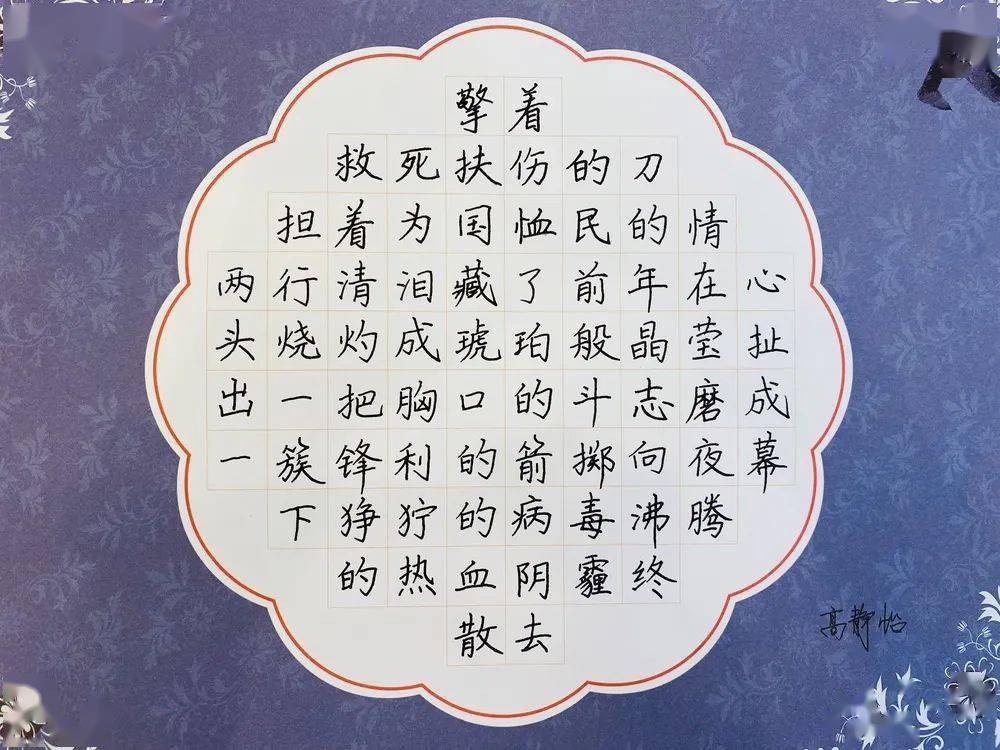 擎着
救死扶伤的刀
担着为国恤民的情
两行清泪藏了前年在心
头烧灼成琥珀般晶莹扯
出一把胸口的斗志磨成
一簇锋利的箭掷向夜幕
下狰狞的病毒沸腾
的热血阴霾终
散去
高静怡